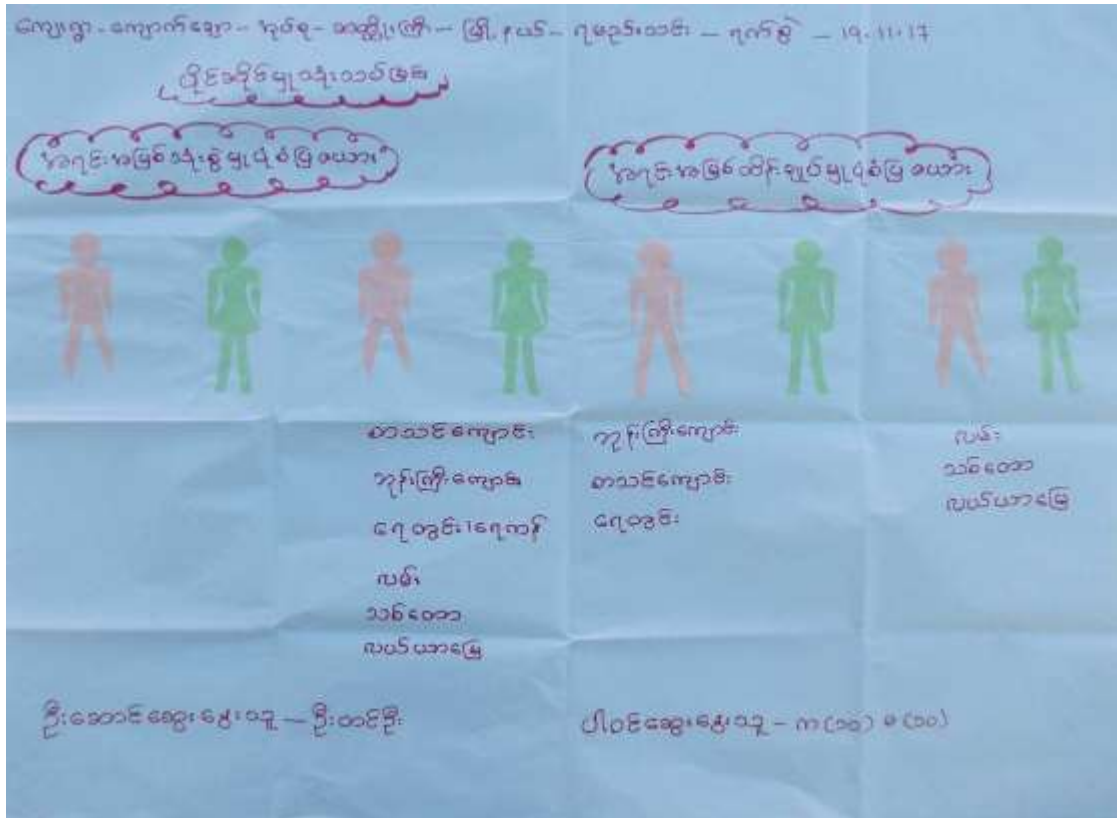 ကျေးရွာ - ကျောက်ချော - အုပ်စု - ဆတ္တိုးကြီး - မြို့နယ် - ရမည်းသင်း - ရက်စွဲ - 19.11.17
ပိုင်ဆိုင်မှုသုံးသပ်ခြင်း
အရင်းအမြစ်သုံးစွဲမှုပုံစံပြဇယား
အရင်းအမြစ်ထိန်းချုပ်မှုပုံစံပြဇယား
စာသင်ကျောင်း
ဘုန်းကြီးကျောင်း
ရေတွင်း၊ရေကန်
လမ်း
သစ်တော
လယ်ယာမြေ
ဘုန်းကြီးကျောင်း
စာသင်ကျောင်း
ရေတွင်း
လမ်း
သစ်တော
လယ်ယာမြေ
ဦးဆောင်ဆွေးနွေးသူ - ဦးတင်ဦး
ပါဝင်ဆွေးနွေးသူ - က (၁၀) မ (၁၀)